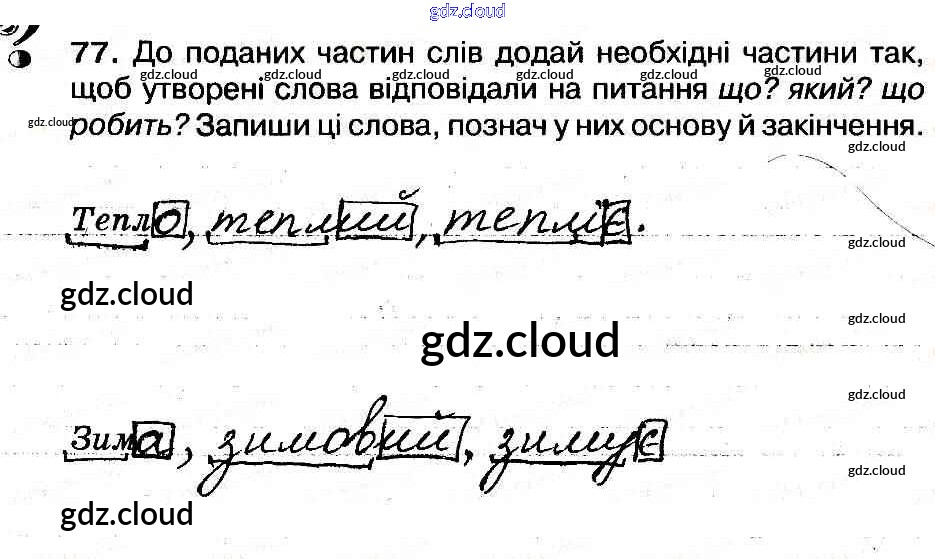 gdz.cloud
77. До поданих частин слів додай необхідні частини так,
gdz.cloud gdz.cloud gdz.cloud gdz.cloud gdz.cloud gdz.cloud
щоб утворені слова відповідали на питання що? який? що
gdz.cloud
робить? Запиши ці слова, познач у них основу й закінчення.
gdz.cloud
Тепло, теплий, тепліє.
gdz.cloud
gdz.cloud
gdz.cloud
gdz.cloud
gdz.cloud
Зима, зимовий, зимує
gdz.cloud
gdz.cloud